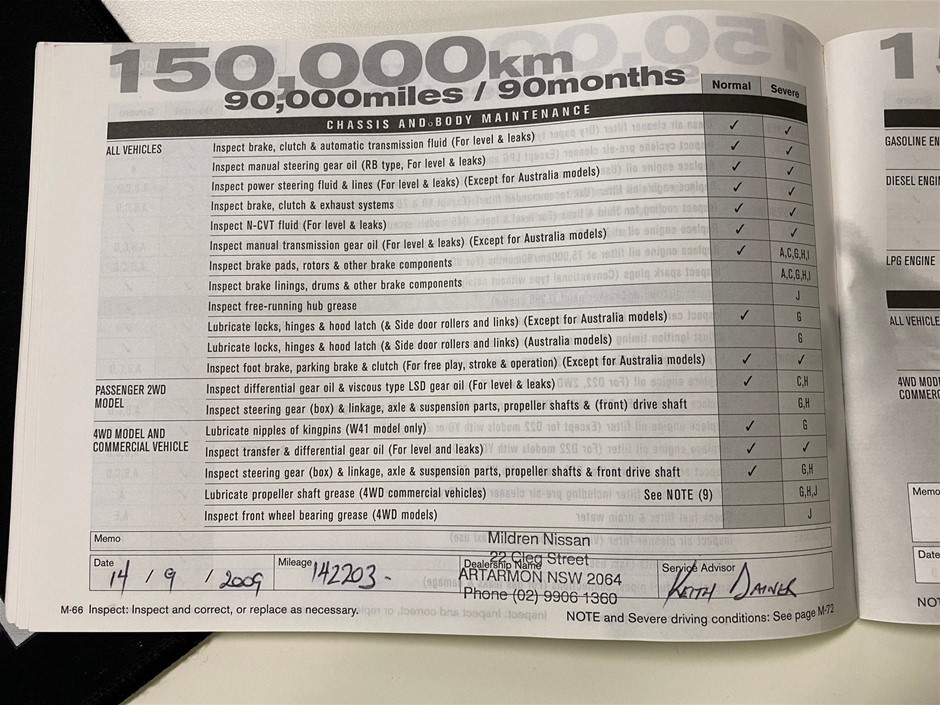 150,000km
90,000miles / 90months
Normal Severe
CHASSIS AND BODY MAINTENANCE
ALL VEHICLES Inspect brake, clutch & automatic transmission fluid (For level & leaks) ✓ ✓
Inspect manual steering gear oil (RB type, For level & leaks) ✓ ✓
Inspect power steering fluid & lines (For level & leaks) (Except for Australia models) ✓ ✓
Inspect brake, clutch & exhaust systems ✓ ✓
Inspect N-CVT fluid (For level & leaks) ✓ ✓
Inspect manual transmission gear oil (For level & leaks) (Except for Australia models) ✓ ✓
Inspect brake pads, rotors & other brake components ✓ A,C,G,H,I
Inspect brake linings, drums & other brake components A,C,G,H,I
Inspect free-running hub grease J
Lubricate locks, hinges & hood latch (& Side door rollers and links) (Except for Australia models) ✓ G
Lubricate locks, hinges & hood latch (& Side door rollers and links) (Australia models) G
Inspect foot brake, parking brake & clutch (For free play, stroke & operation) (Except for Australia models) ✓ ✓
PASSENGER 2WD MODEL Inspect differential gear oil & viscous type LSD gear oil (For level & leaks) ✓ C,H
Inspect steering gear (box) & linkage, axle & suspension parts, propeller shafts & (front) drive shaft G,H
4WD MODEL AND COMMERCIAL VEHICLE Lubricate nipples of kingpins (W41 model only) ✓ G
Inspect transfer & differential gear oil (For level and leaks) ✓ ✓
Inspect steering gear (box) & linkage, axle & suspension parts, propeller shafts & front drive shaft ✓ G,H
Lubricate propeller shaft grease (4WD commercial vehicles) See NOTE (9) G,H,J
Inspect front wheel bearing grease (4WD models) J
Memo
Mildren Nissan
22 Cleg Street
ARTARMON NSW 2064
Phone (02) 9906 1360
Date 14 / 9 / 2009
Mileage 142203-
Dealership Name
Service Advisor KEITH
M-66 Inspect: Inspect and correct, or replace as necessary.
NOTE and Severe driving conditions: See page M-72
GASOLINE EN
DIESEL ENGIN
LPG ENGINE
ALL VEHICLE
4WD MOD
COMMERC
Memo
Date
NOT